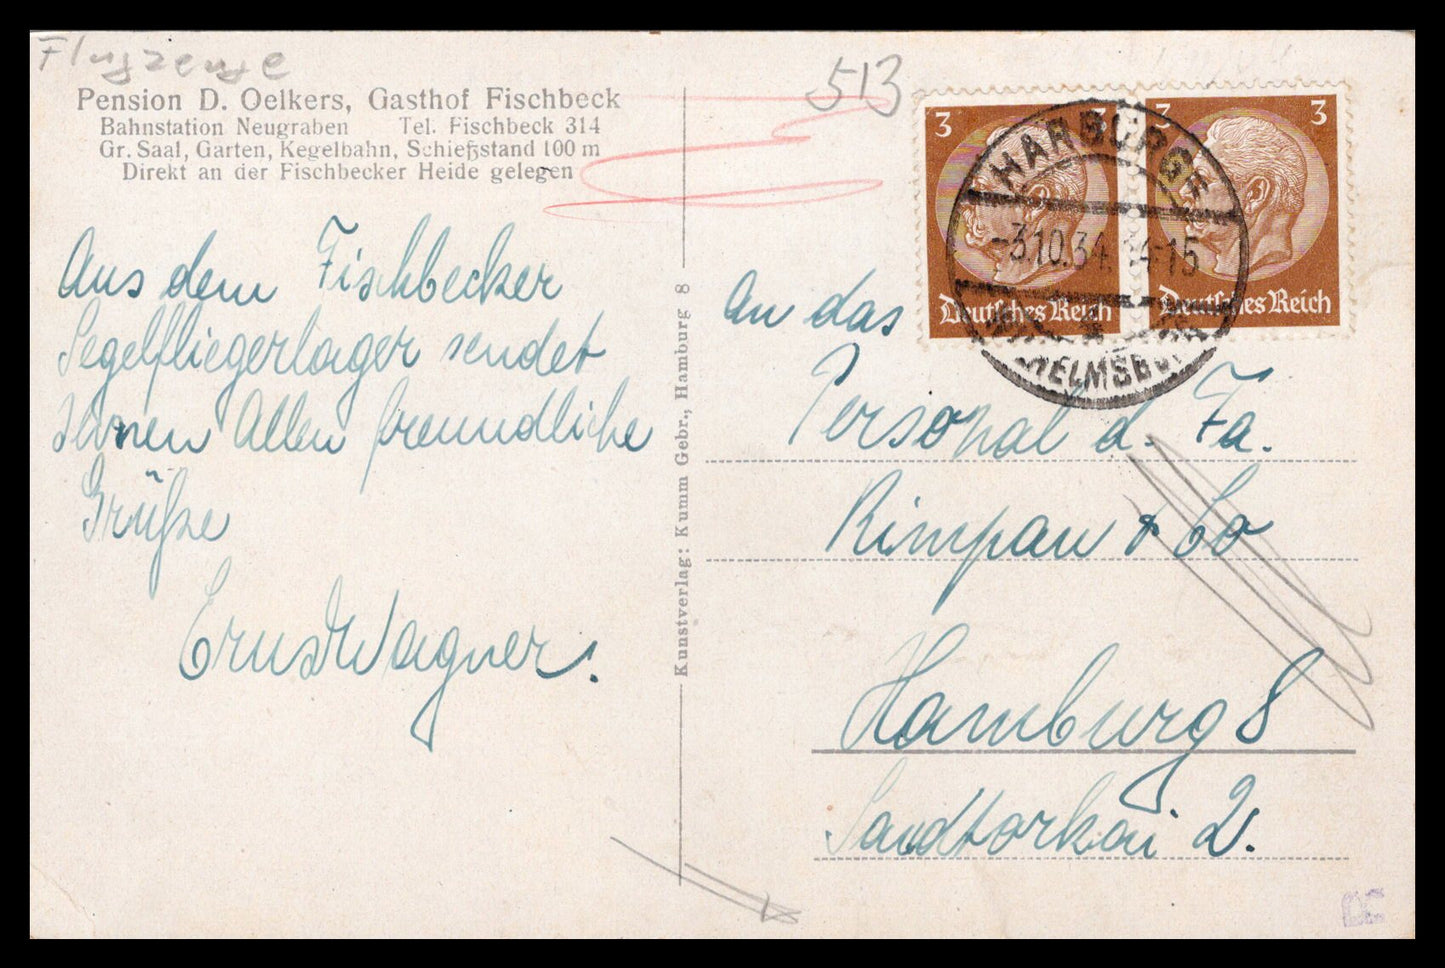 Flugzeuge
513
Pension D. Oelkers, Gasthof Fischbeck
Bahnstation Neugraben Tel. Fischbeck 314
Gr. Saal, Garten, Kegelbahn, Schießstand 100 m
Direkt an der Fischbecker Heide gelegen
Aus dem Fischbecker
Segelfliegerlager sendet
Ihnen Allen freundliche
Grüße
Ernst Wagner.
Kunstverlag: Kumm Gebr., Hamburg 8
3
3
Deutsches Reich
Deutsches Reich
HARBURG
-3.10.34. 14-15
An das
Personal d. Fa.
Rimpau & Co
Hamburg 8
Sandtorkai 2.